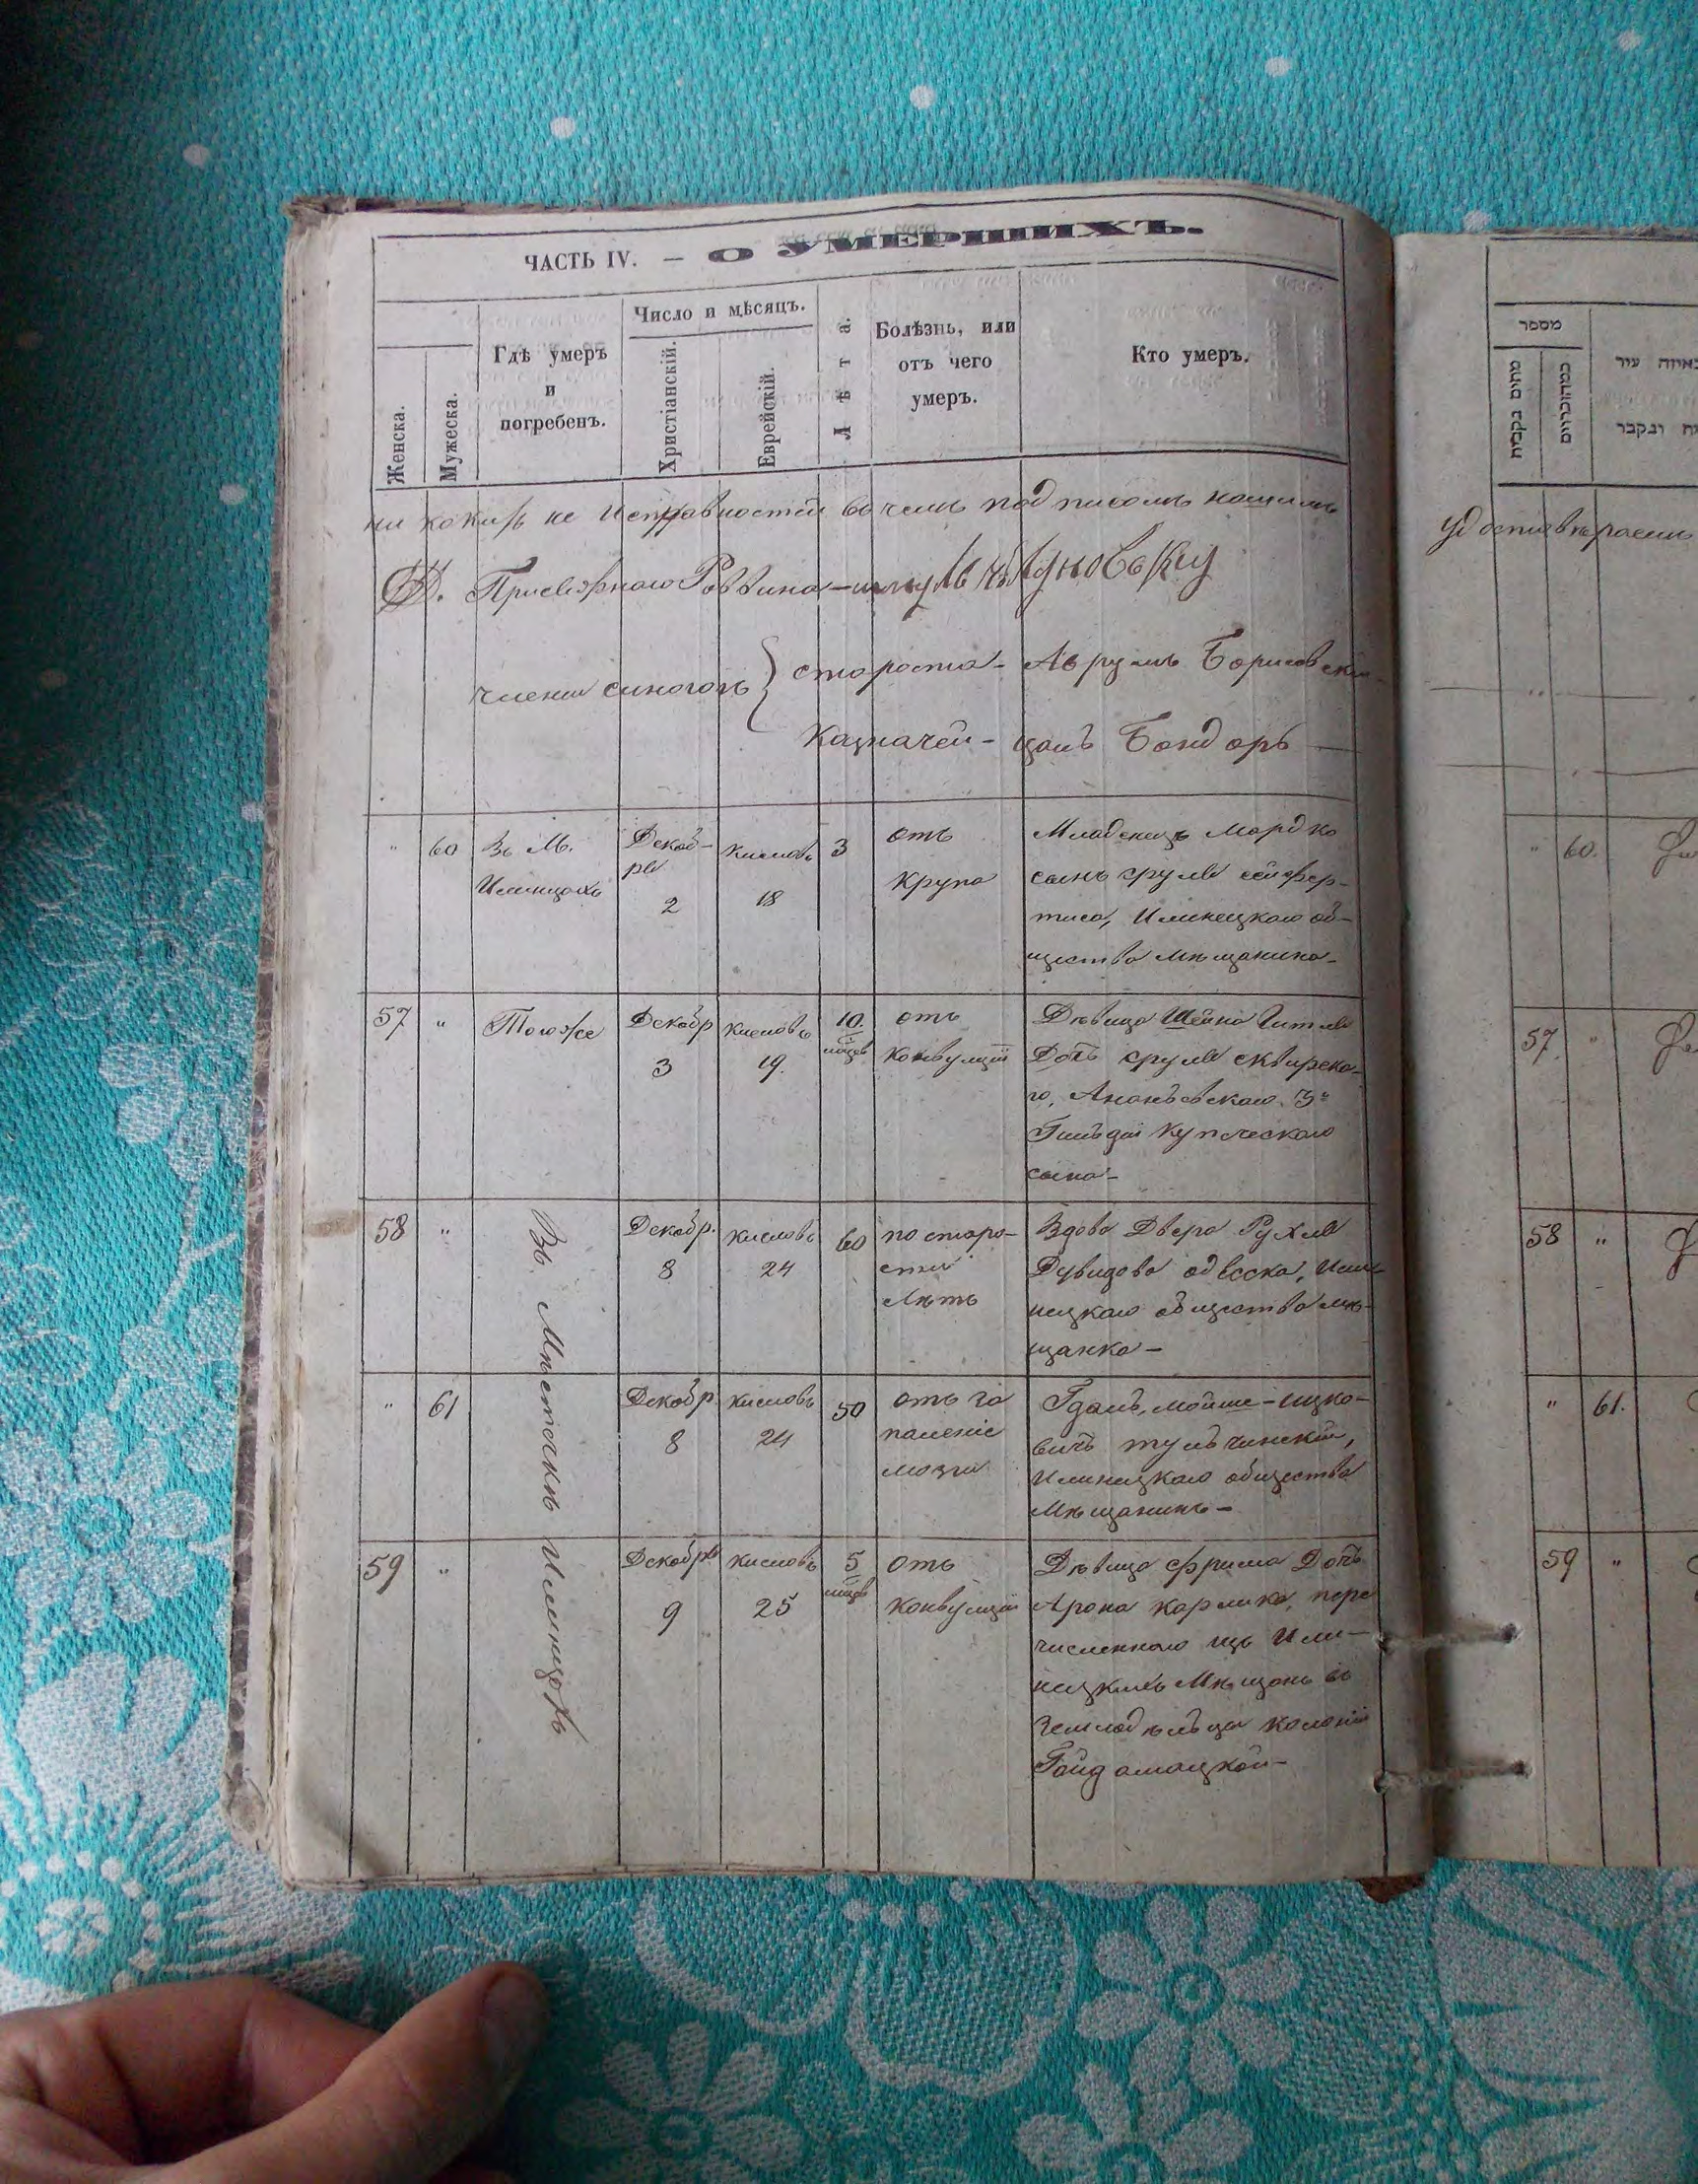 ЧАСТЬ IV. — О УМЕРШИХЪ.
Женска.
Мужеска.
Гдѣ умеръ
и
погребенъ.
Число и мѣсяцъ.
Христіанскій.
Еврейскій.
Лѣта.
Болѣзнь, или
отъ чего
умеръ.
Кто умеръ.
ни какихъ не исправностей въ чемъ подписомъ нашимъ
Присяжнаго Раввина —
члены синагогъ { староста — Аврумъ Борисовскій —
Казначей — Бондарь —
" 60 Въ М.
Илинцахъ
Декаб-
ря
2
кисловъ
18
3
отъ
крупа
Младенецъ Мордко
сынъ срумя
Илинецкаго об-
щества мѣщанина —
57 " Тоже
Декабр
3
кисловъ
19.
10.
мѣсяц
отъ
конвулціи
Дѣвица Шейна Гитля
Дочь срумя сквирска-
го, Ананьевскаго 3й
Гильдіи купеческаго
сына —
58 "
Въ Мѣстечкѣ Илинцахъ
Декабр.
8
кисловъ
24
60
по старо-
сти
лѣтъ
Вдова Двера Рухля
Дувидова одесска, Или-
нецкаго общества мѣ-
щанка —
" 61
Декабр
8
кисловъ
24
50
отъ го
паленіе
мозги
Гдаль, мойше — ицко-
вичъ тульчинскій,
Илинецкаго общества
Мѣщанинъ —
59 "
Декабря
9
кисловъ
25
5
мѣсяц
отъ
конвулціи
Дѣвица фрима Дочь
Арона карлика, пере
численнаго изъ Или-
нецкихъ Мѣщанъ въ
Земледѣльца колоніи
Гайдамацкой —
מספר
מתים נקבות
במדוכרים
באיזה עיר
ונקבר
удостовѣряемъ
" 60.
57. "
58 "
" 61.
59 "